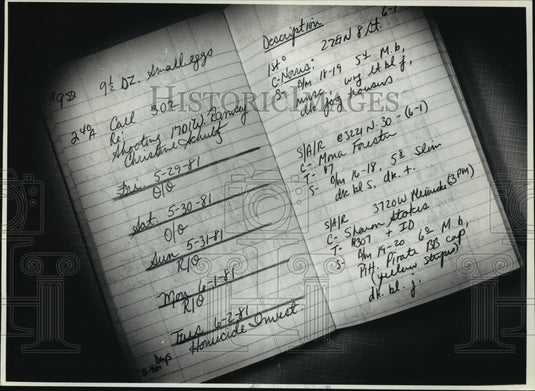 1950 9½ DZ. Small eggs
2 40A Call 302-1
Re:
Shooting 1701 W. Ramsey
Christine Schultz
Fri. 5-29-81
O/O
Sat. 5-30-81
O/O
Sun 5-31-81
R/O
Mon 6-1-81
R/O
Tues. 6-2-81
Days
Homicide Invest.
8-4pm
Description 6-1
1st° 2221 N 8 St.
C-
S- B/m 18-19 5½ M.b,
lt bl j,
dk
S/A/R @3221 N. 30 - (6-1)
C- Mona Forester
T- $7
S- B/m 16-18, 5½ Slim
dk bl s, dk. t.
S/A/R 3720 W Meinicke (3PM)
C- Sharon Stokes
T- $307 + ID
S- B/m 19-20 62 M.b,
Pitt. Pirate BB cap
(yellow stripes)
dk. bl. j.
HISTORIC IMAGES